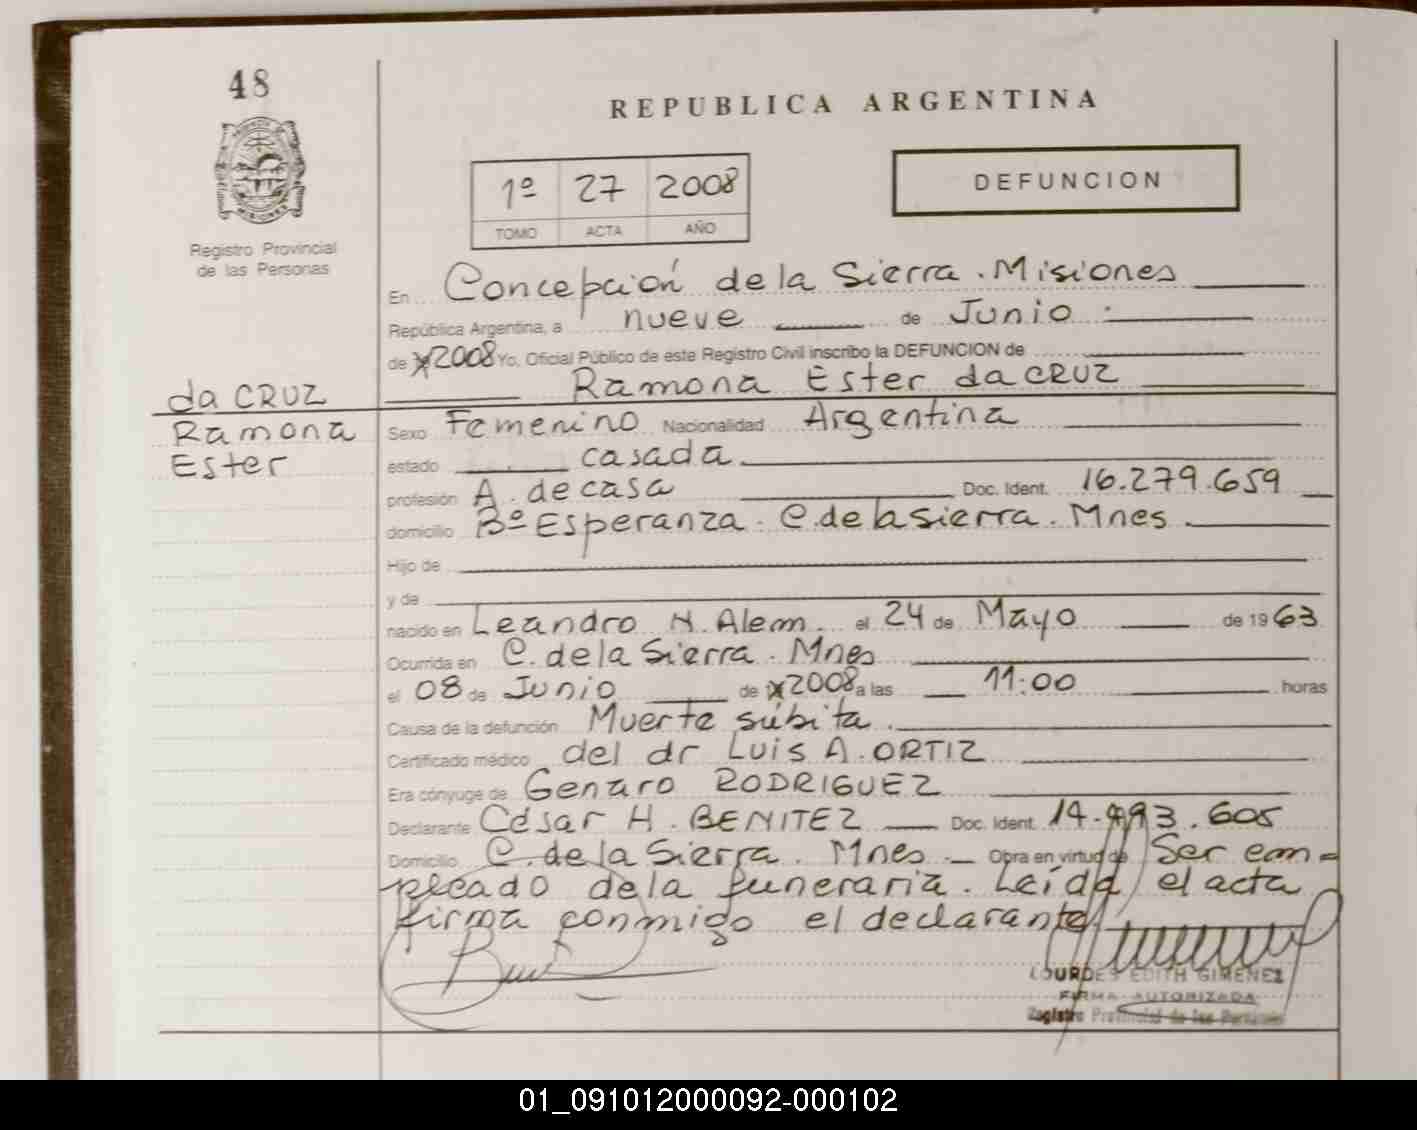 48
REPUBLICA ARGENTINA
1º 27 2008
TOMO ACTA AÑO
DEFUNCION
Registro Provincial
de las Personas
En Concepción de la Sierra. Misiones
República Argentina, a nueve de Junio
de 2008 Yo, Oficial Público de este Registro Civil inscribo la DEFUNCION de
da CRUZ Ramona Ester da CRUZ
Ramona
Ester
Sexo Femenino Nacionalidad Argentina
estado casada
profesión A. de casa Doc. Ident. 16.279.659
domicilio Bº Esperanza. C. de la sierra. Mnes.
Hijo de
y de
nacido en Leandro N. Alem. el 24 de Mayo de 1963
Ocurrida en C. de la Sierra. Mnes
el 08 de Junio de 2008 a las 11:00 horas
Causa de la defunción Muerte súbita.
Certificado médico del dr Luis A. ORTIZ
Era cónyuge de Genaro RODRIGUEZ
Declarante César H. BENITEZ Doc. Ident. 14. .605
Domicilio C. de la Sierra. Mnes. Obra en virtud de Ser em-
pleado de la funeraria. Leída el acta
firma conmigo el declarante
LOURDES EDITH GIMENEZ
FIRMA AUTORIZADA
Registro Provincial de las Personas
01_091012000092-000102